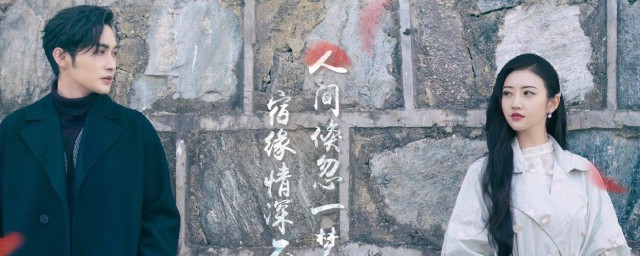 人间倏忽一梦
宿缘情深